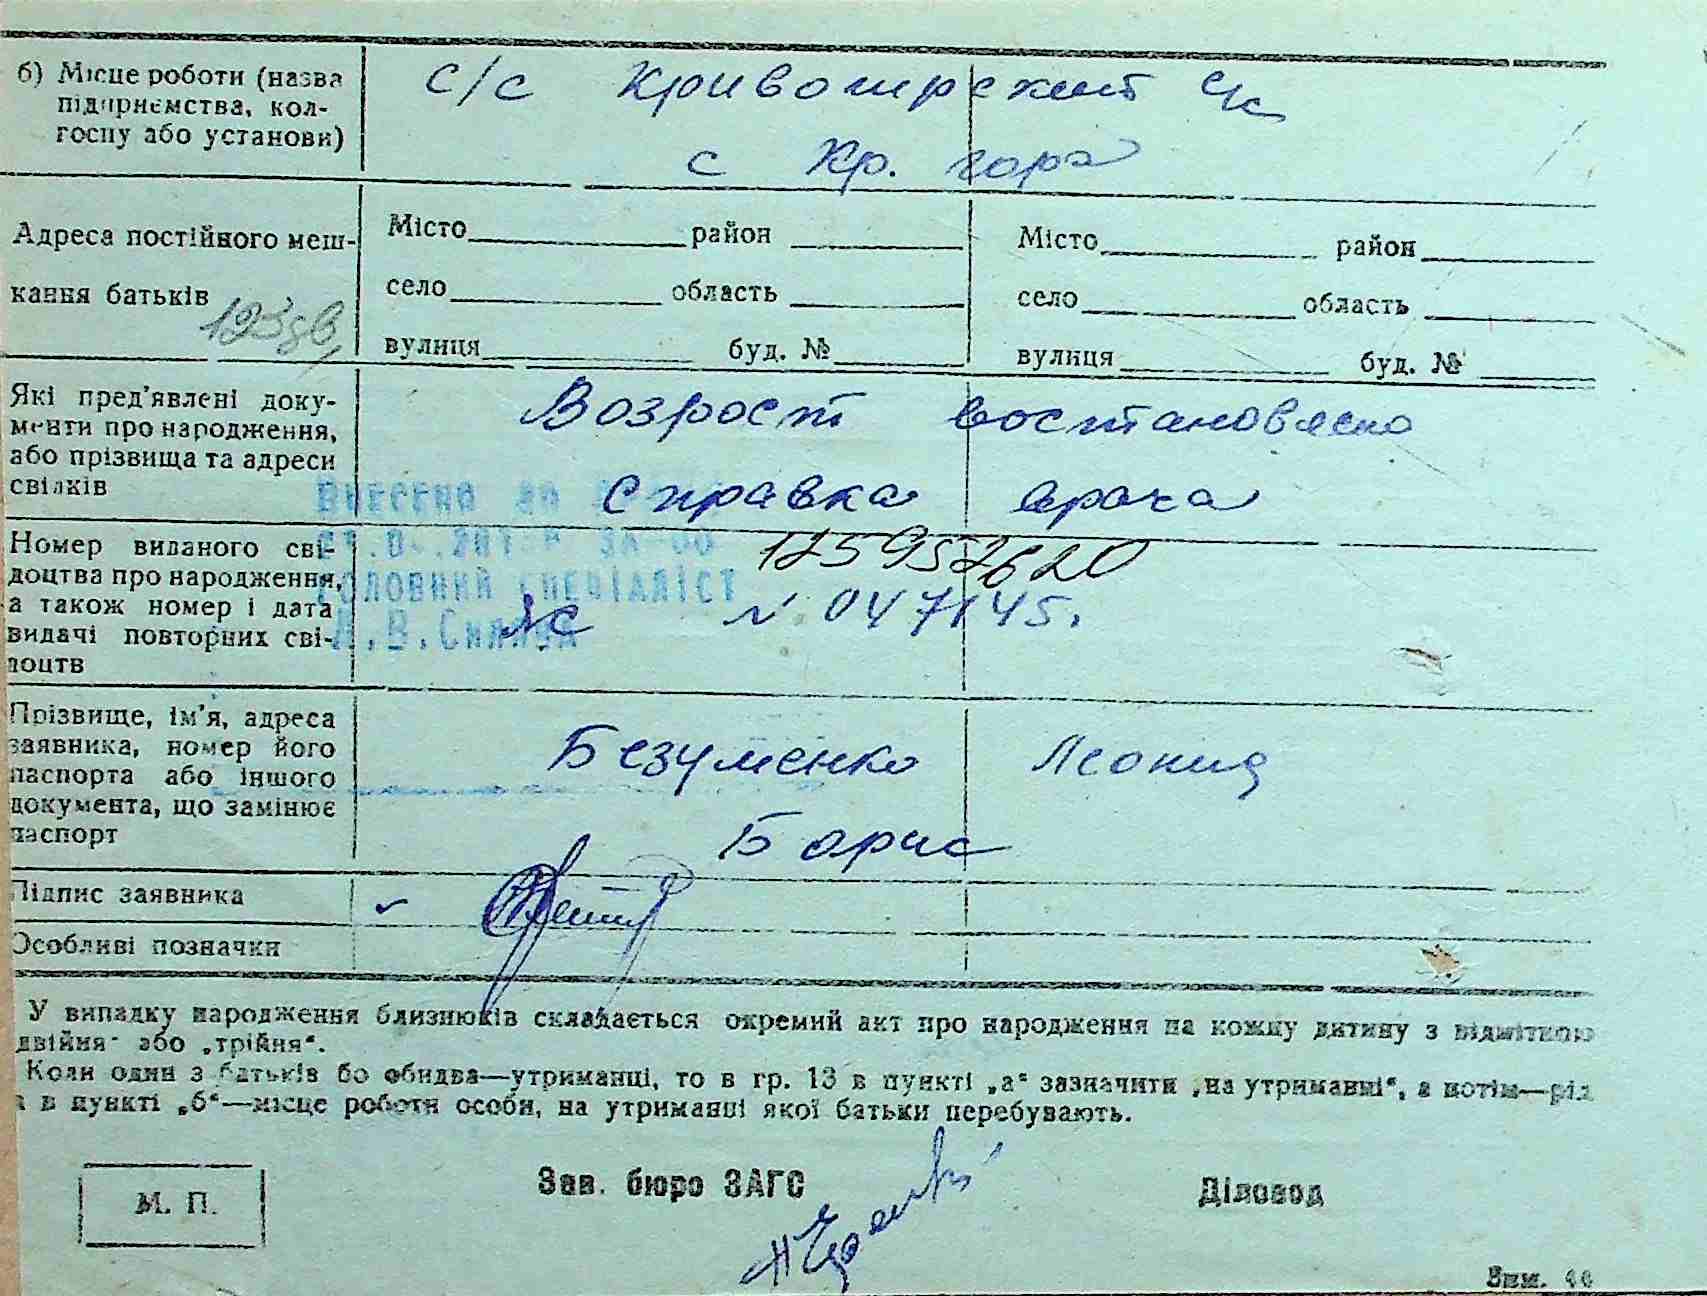 б) Місце роботи (назва
підприємства, кол-
госпу або установи)
с/с
с Кр. гора
Адреса постійного меш-
кання батьків
Місто район
село область
вулиця буд. №
Місто район
село область
вулиця буд. №
Які пред'явлені доку-
менти про народження,
або прізвища та адреси
свідків
Возрост востановлено
справка врача
Внесено до
Головний спеціаліст
Номер виданого сві-
доцтва про народження,
а також номер і дата
видачі повторних сві-
доцтв
125952620
№ 047145.
Прізвище, ім'я, адреса
заявника, номер його
паспорта або іншого
документа, що замінює
паспорт
Безуменко Леонид
Борис
Підпис заявника
Особливі позначки
У випадку народження близнюків складається окремий акт про народження на кожну дитину з відміткою
двійня" або „трійня".
Коли один з батьків бо обидва—утриманці, то в гр. 13 в пункті „а" зазначити „на утриманні", а потім—рід
в пункті „б"—місце роботи особи, на утриманні якої батьки перебувають.
М. П.
Зав. бюро ЗАГС
Діловод